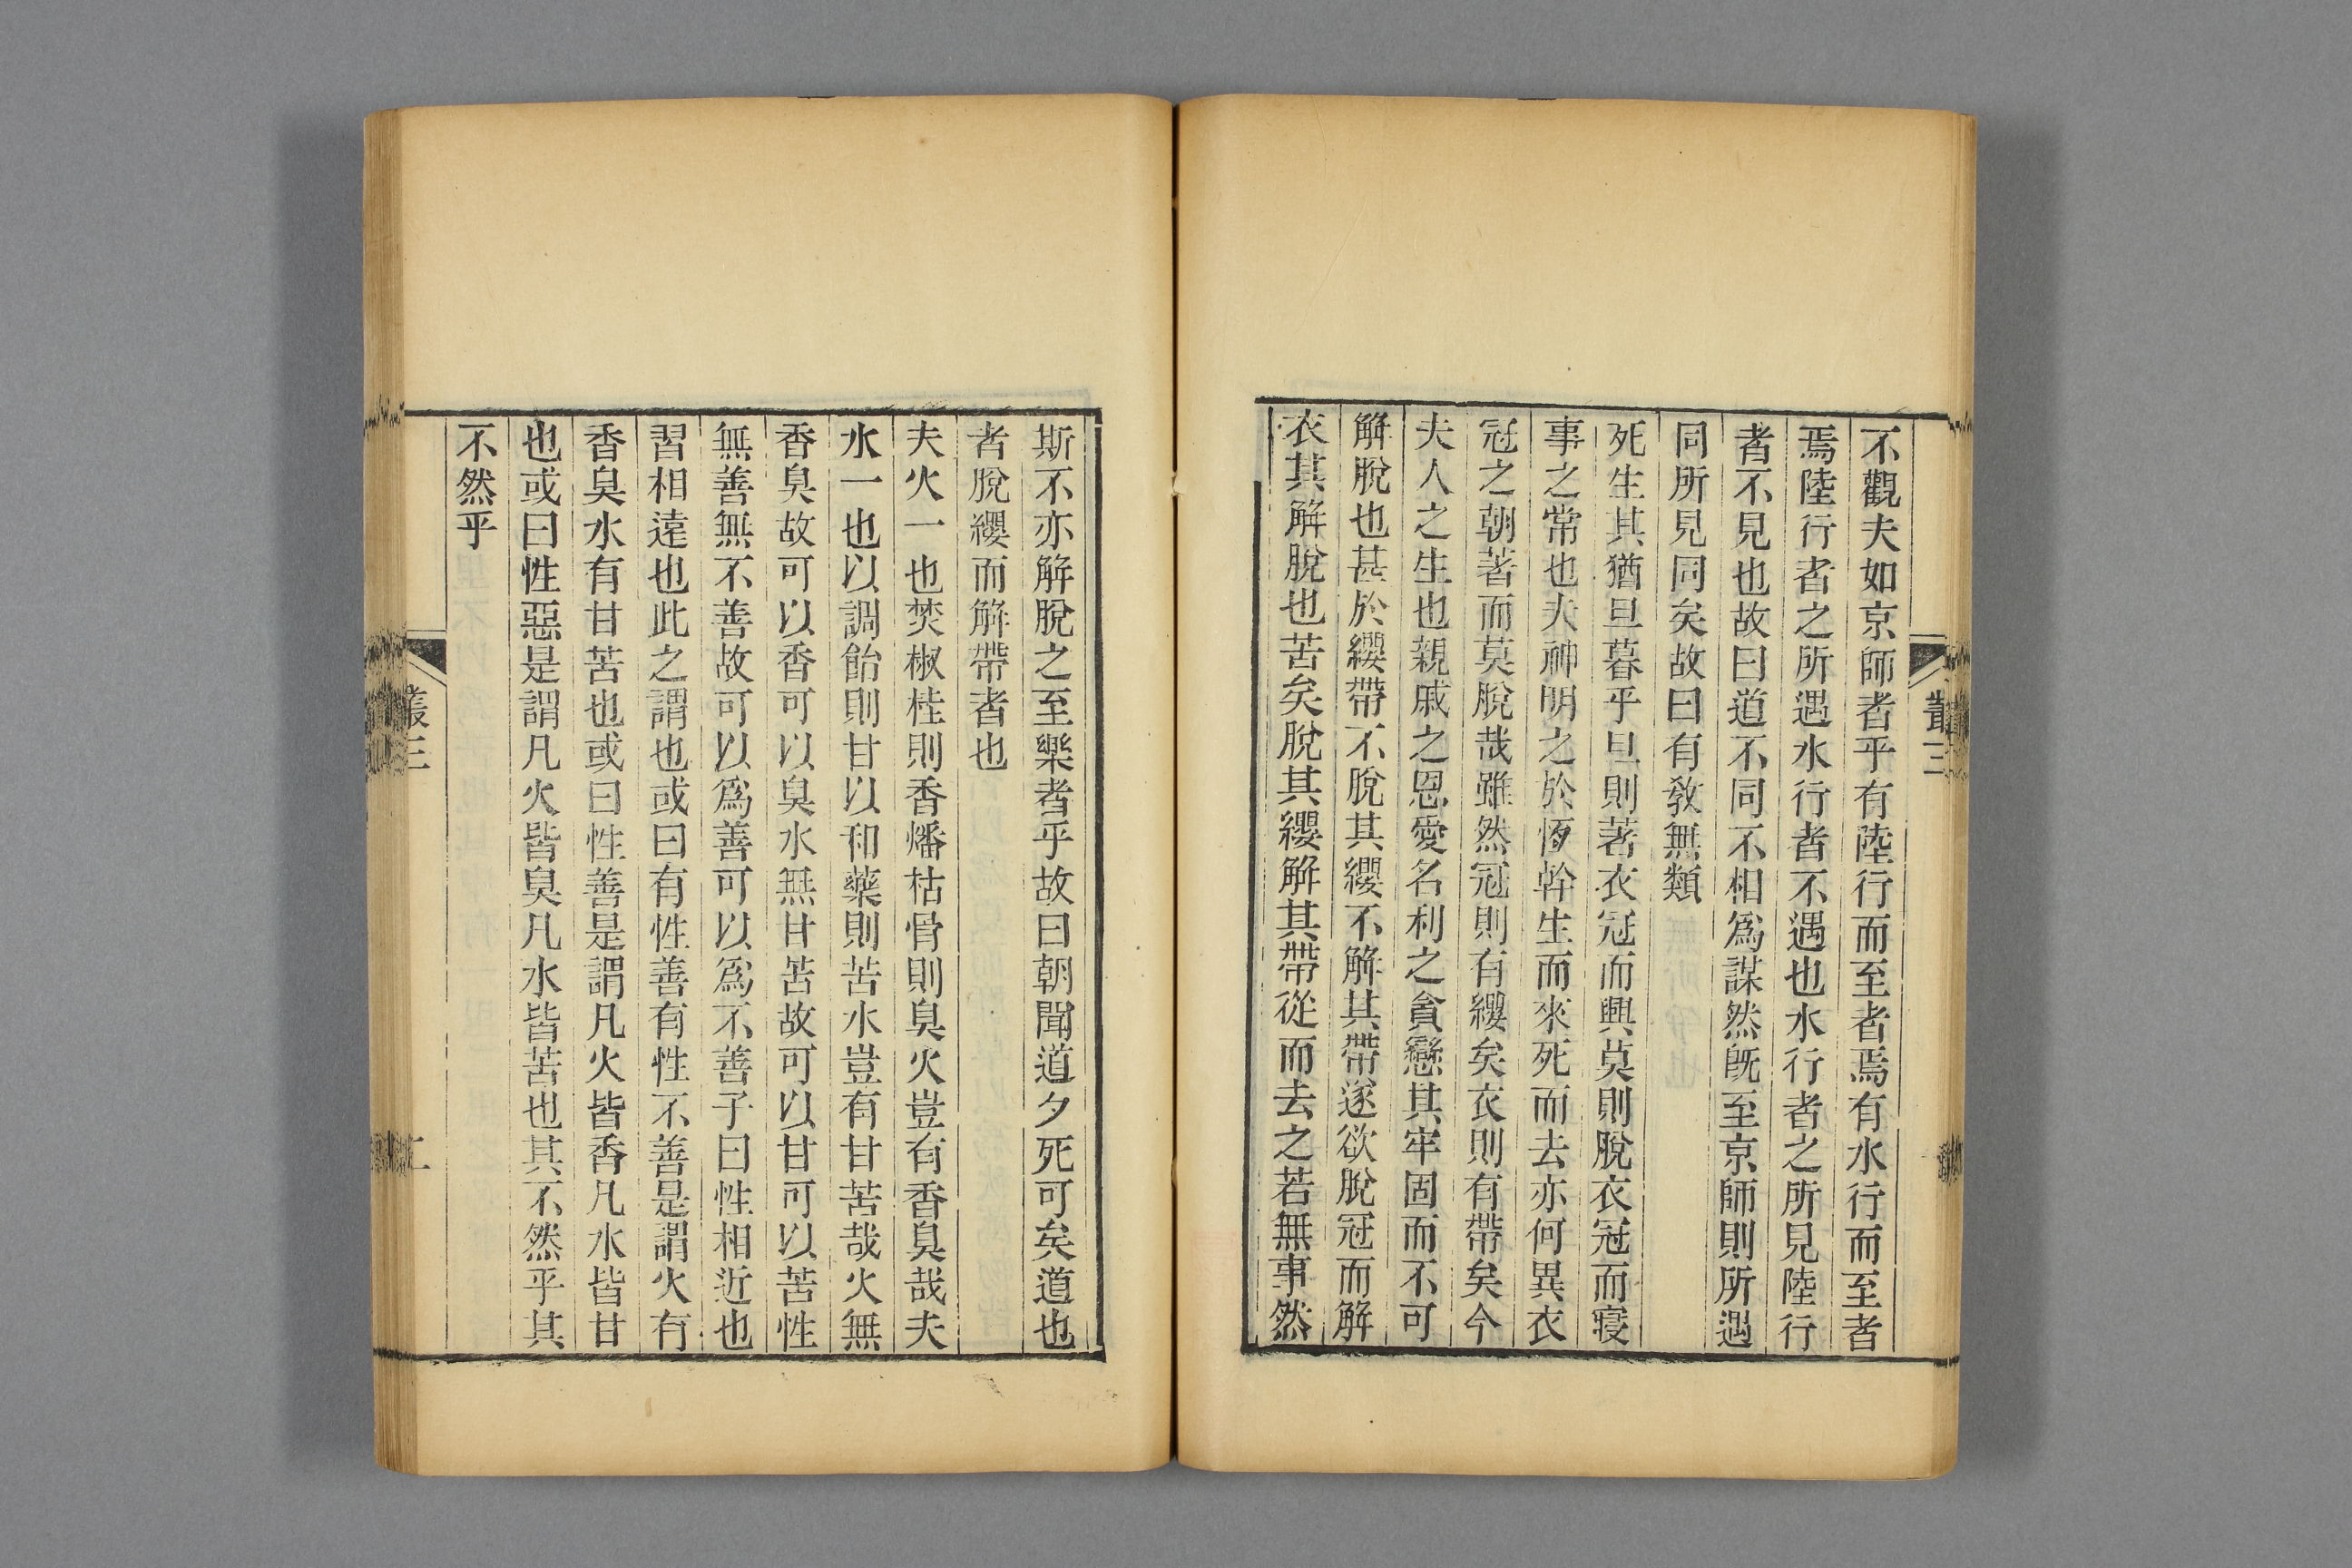 不觀夫如京師者乎有陸行而至者焉有水行而至者
焉陸行者之所遇水行者不遇也水行者之所見陸行
者不見也故曰道不同不相爲謀然旣至京師則所遇
同所見同矣故曰有敎無類
死生其猶旦暮乎旦則著衣冠而興莫則脫衣冠而寢
事之常也夫神明之於恆幹生而來死而去亦何異衣
冠之朝著而莫脫哉雖然冠則有纓矣衣則有帶矣今
夫人之生也親戚之恩愛名利之貪戀其牢固而不可
解脫也甚於纓帶不脫其纓不解其帶遂欲脫冠而解
衣其解脫也苦矣脫其纓解其帶從而去之若無事然
叢三
斯不亦解脫之至樂者乎故曰朝聞道夕死可矣道也
者脫纓而解帶者也
夫火一也焚椒桂則香燔枯骨則臭火豈有香臭哉夫
水一也以調飴則甘以和藥則苦水豈有甘苦哉火無
香臭故可以香可以臭水無甘苦故可以甘可以苦性
無善無不善故可以爲善可以爲不善子曰性相近也
習相遠也此之謂也或曰有性善有性不善是謂火有
香臭水有甘苦也或曰性善是謂凡火皆香凡水皆甘
也或曰性惡是謂凡火皆臭凡水皆苦也其不然乎其
不然乎
叢三